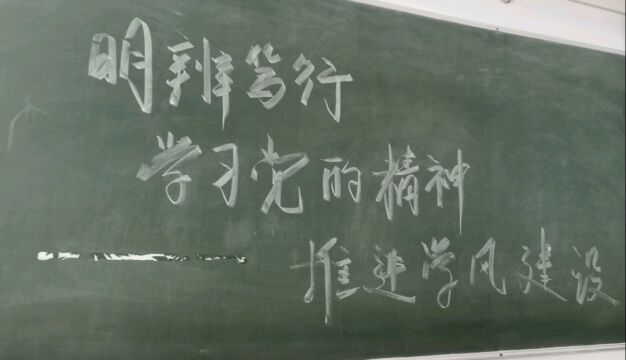 明辨笃行
学习党的精神
推进学风建设